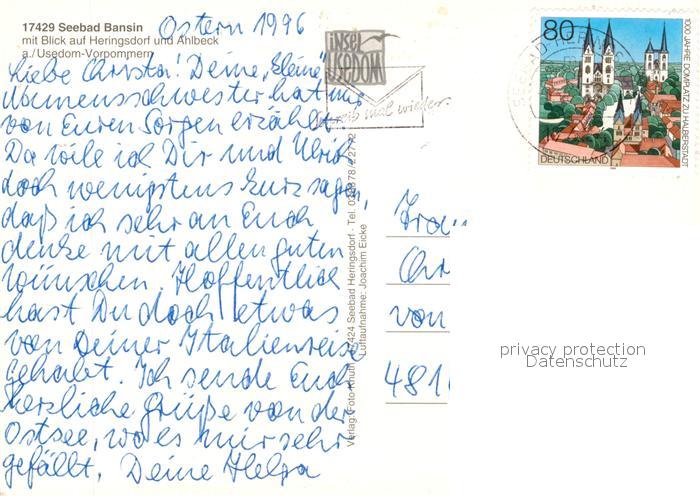 17429 Seebad Bansin
mit Blick auf Heringsdorf und Ahlbeck
a./Usedom-Vorpommern
Ostern 1996
Liebe Christa! Deine "kleine"
Namensschwester hat mir
von Euren Sorgen erzählt.
Da will ich Dir und Ulrich
doch wenigstens kurz sagen,
daß ich sehr an Euch
denke mit allen guten
Wünschen. Hoffentlich
hast Du doch etwas
von Deiner Italienreise
gehabt. Ich sende Euch
herzliche Grüße von der
Ostsee, wo es mir sehr
gefällt. Deine Helga
INSEL
USEDOM
schreib mal wieder.
80
1000 JAHRE DOMPLATZ ZU HALBERSTADT
DEUTSCHLAND
Seebad Heringsdorf · Tel.
Luftaufnahme: Joachim Eicke
Frau
Chr
von
481
privacy protection
Datenschutz